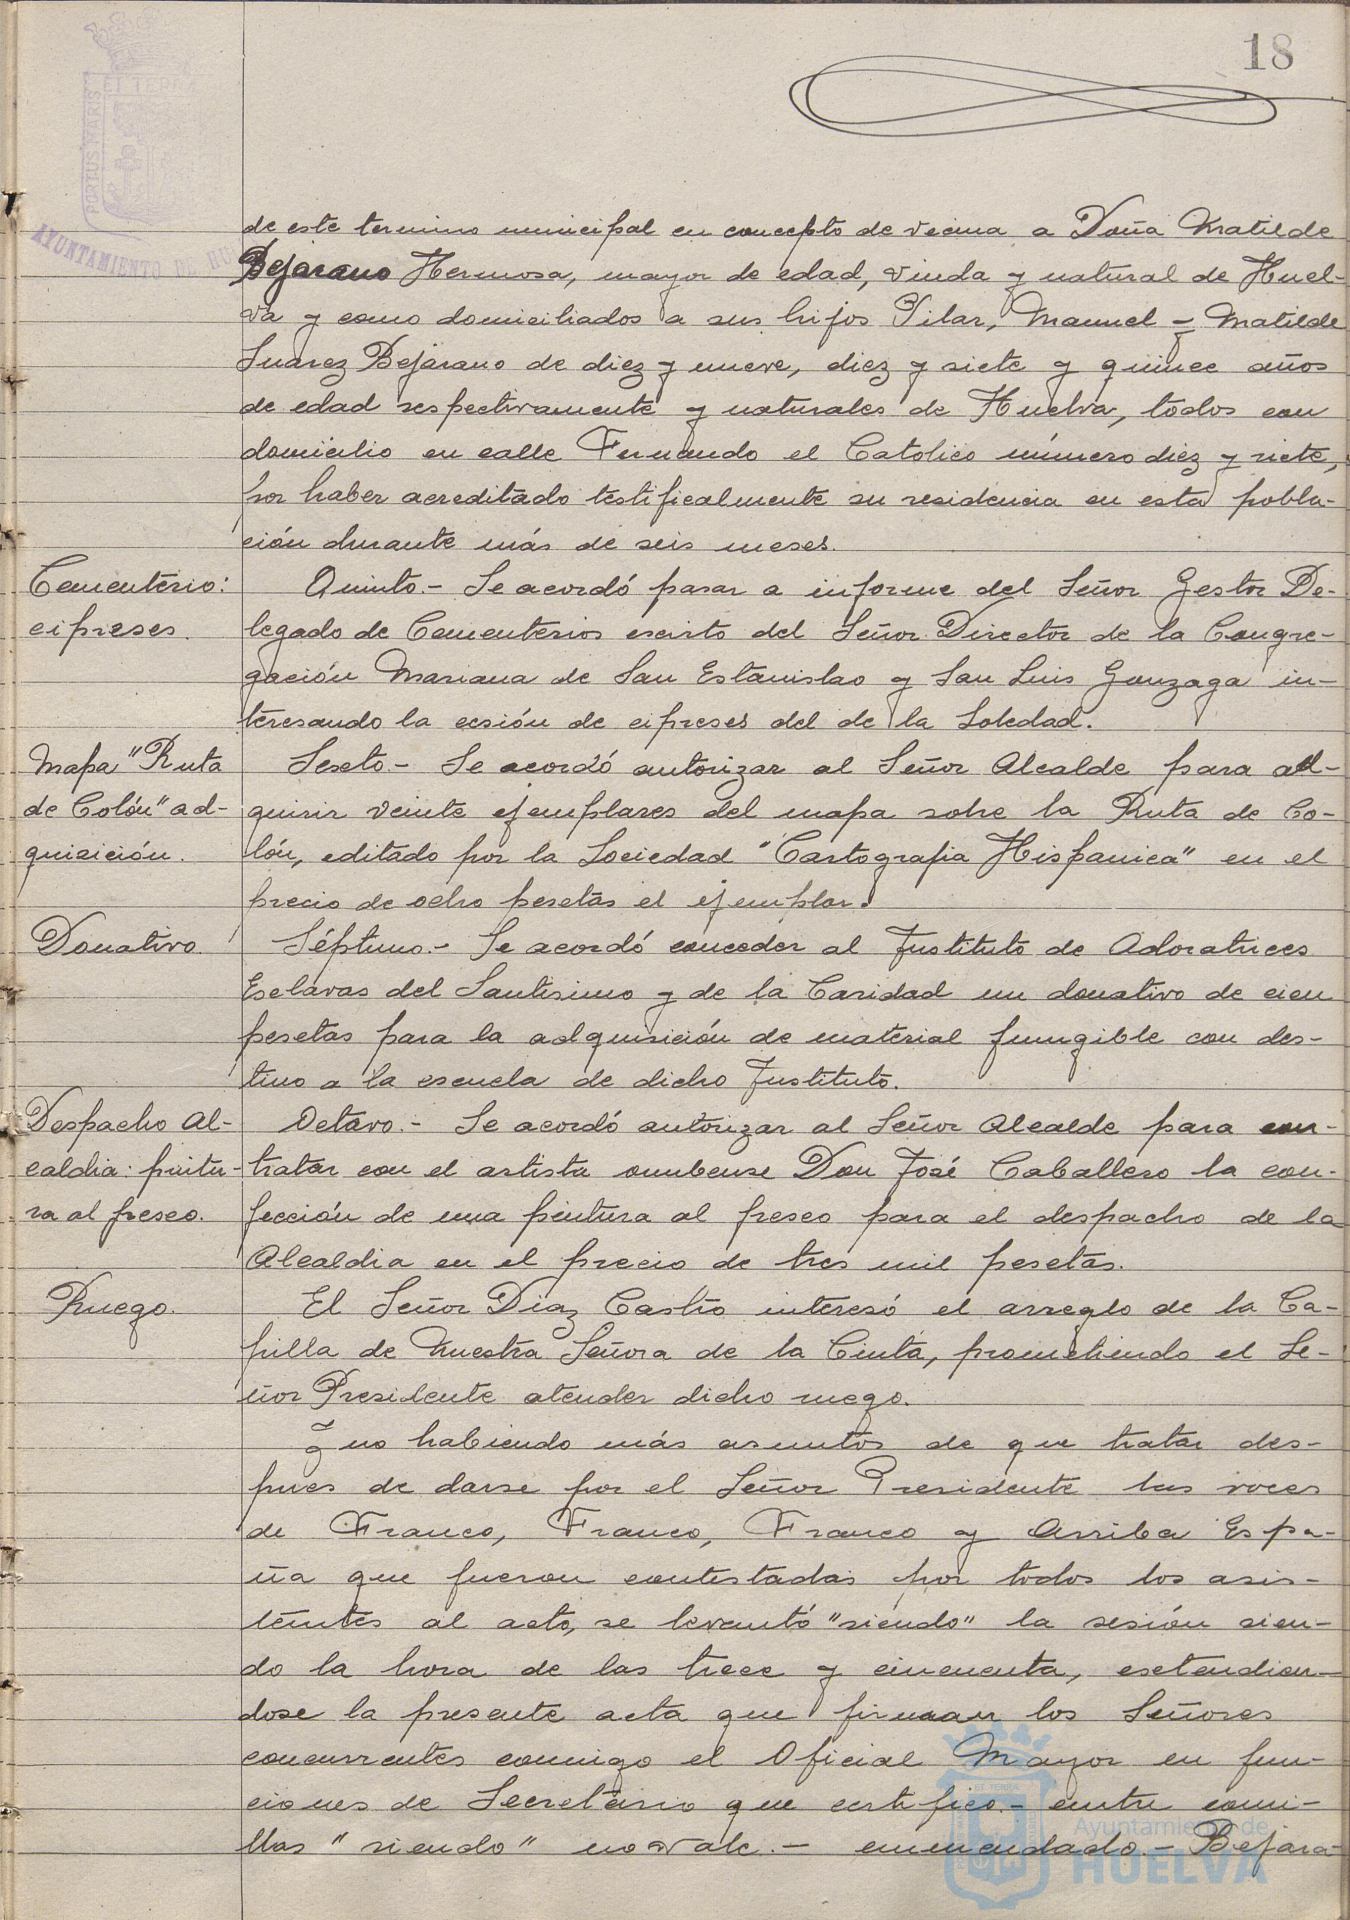 18
ET TERRA
PORTUS MARIS
AYUNTAMIENTO DE HU
de este termino municipal en concepto de vecina a Doña Matilde
Bejarano Hermosa, mayor de edad, viuda y natural de Huel-
va y como domiciliados a sus hijos Pilar, Manuel y Matilde
Suarez Bejarano de diez y nueve, diez y siete y quince años
de edad respectivamente y naturales de Huelva, todos con
domicilio en calle Fernando el Catolico número diez y siete,
por haber acreditado testificalmente su residencia en esta pobla-
ción durante más de seis meses.
Cementerio:
cipreses.
Quinto.- Se acordó pasar a informe del Señor Gestor De-
legado de Cementerios escrito del Señor Director de la Congre-
gación Mariana de San Estanislao y San Luis Gonzaga in-
teresando la cesión de cipreses del de la Soledad.
Mapa "Ruta
de Colón" ad-
quisición.
Sexto.- Se acordó autorizar al Señor Alcalde para ad-
quirir veinte ejemplares del mapa sobre la Ruta de Co-
lón, editado por la Sociedad "Cartografia Hispanica" en el
precio de ocho pesetas el ejemplar.
Donativo.
Séptimo.- Se acordó conceder al Instituto de Adoratrices
Esclavas del Santisimo y de la Caridad un donativo de cien
pesetas para la adquisición de material fungible con des-
tino a la escuela de dicho Instituto.
Despacho Al-
caldia: pintu-
ra al fresco.
Octavo.- Se acordó autorizar al Señor Alcalde para con-
tratar con el artista onubense Don José Caballero la con-
fección de una pintura al fresco para el despacho de la
Alcaldia en el precio de tres mil pesetas.
Ruego.
El Señor Diaz Castro interesó el arreglo de la Ca-
pilla de Nuestra Señora de la Cinta, prometiendo el Se-
ñor Presidente atender dicho ruego.
Y no habiendo más asuntos de que tratar des-
pues de darse por el Señor Presidente las voces
de Franco, Franco, Franco y Arriba Espa-
ña que fueron contestadas por todos los asis-
tentes al acto, se levantó "siendo" la sesión sien-
do la hora de las trece y cincuenta, extendien-
dose la presente acta que firman los Señores
concurrentes conmigo el Oficial Mayor en fun-
ciones de Secretario que certifico.- entre comi-
llas "siendo" no vale.- enmendado.- Bejara-
ET TERRA
Ayuntamiento de
HUELVA